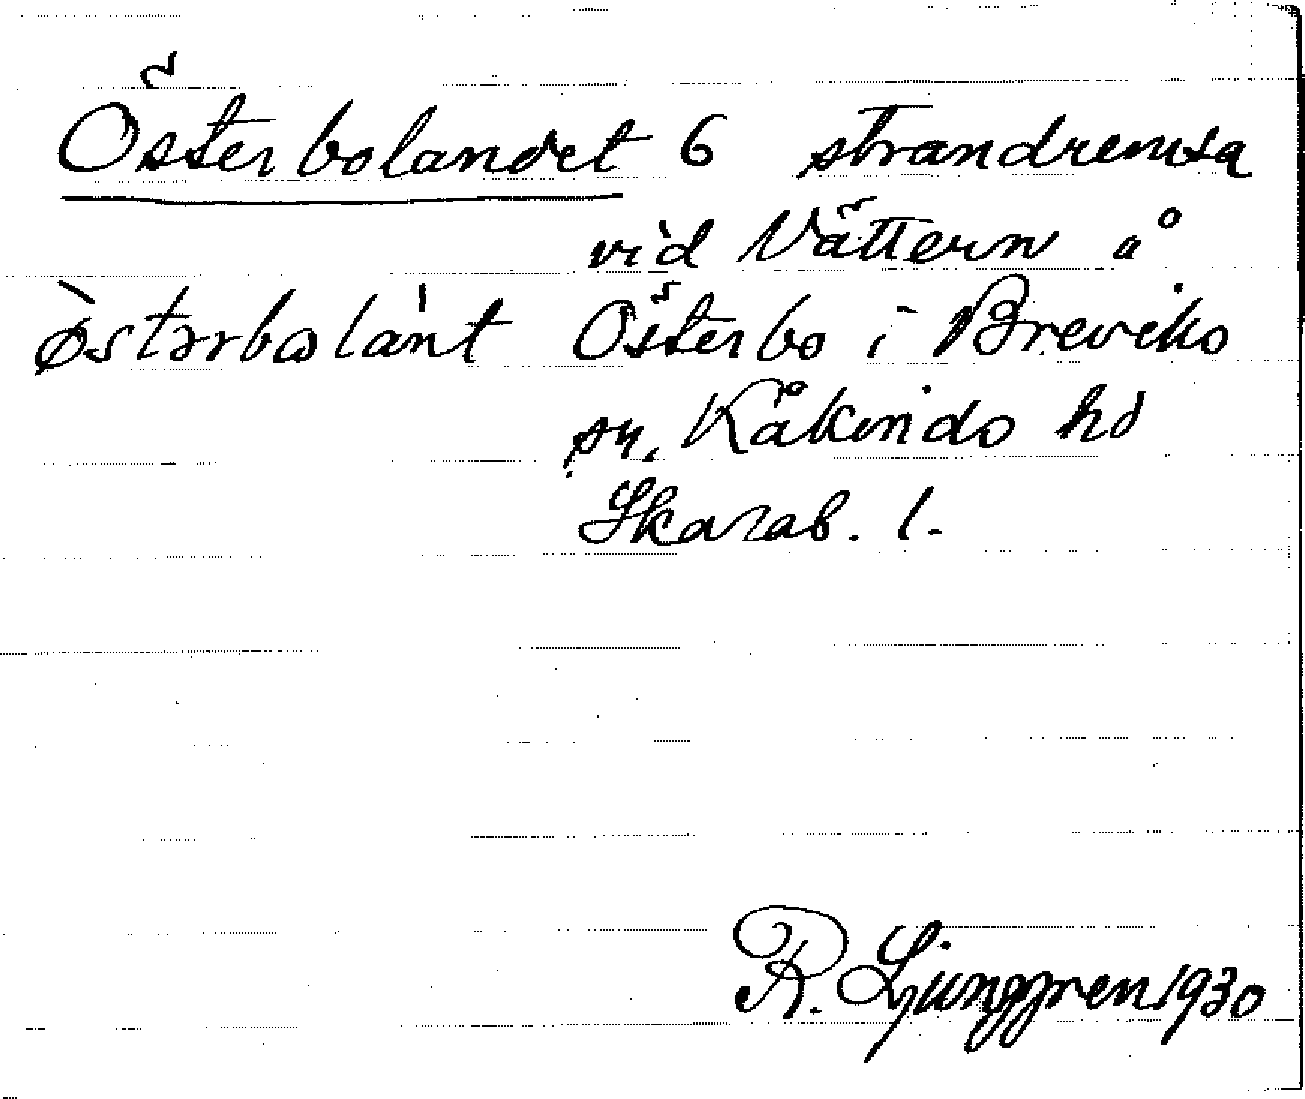 Österbolandet 6 strandremsa
vid Vättern å
østərbolánt Österbo i Breviks
sn, Kåkinds hd
Skarab. l.
R. Ljunggren 1930